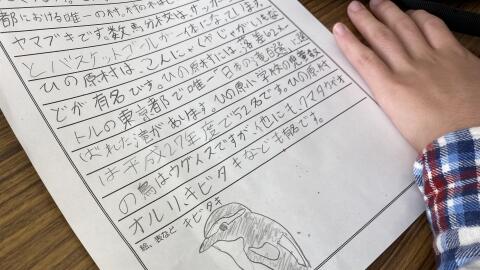 都における唯一の村。村の木は
ヤマブキです。数馬分校は、サッカー
とバスケットゴールが一体になっています。
ひの原村は、こんにゃくやじゃがいもな
どが有名です。ひの原村には、落差
トルの東京都で唯一「日本の滝百選」に選
ばれた滝があります。ひの原小学校の児童数
は平成27年度で52名です。ひの原村
の鳥はウグイスですが、他にも、クマタカやキ
オルリ、キビタキなども有名です。
絵、表など キビタキ